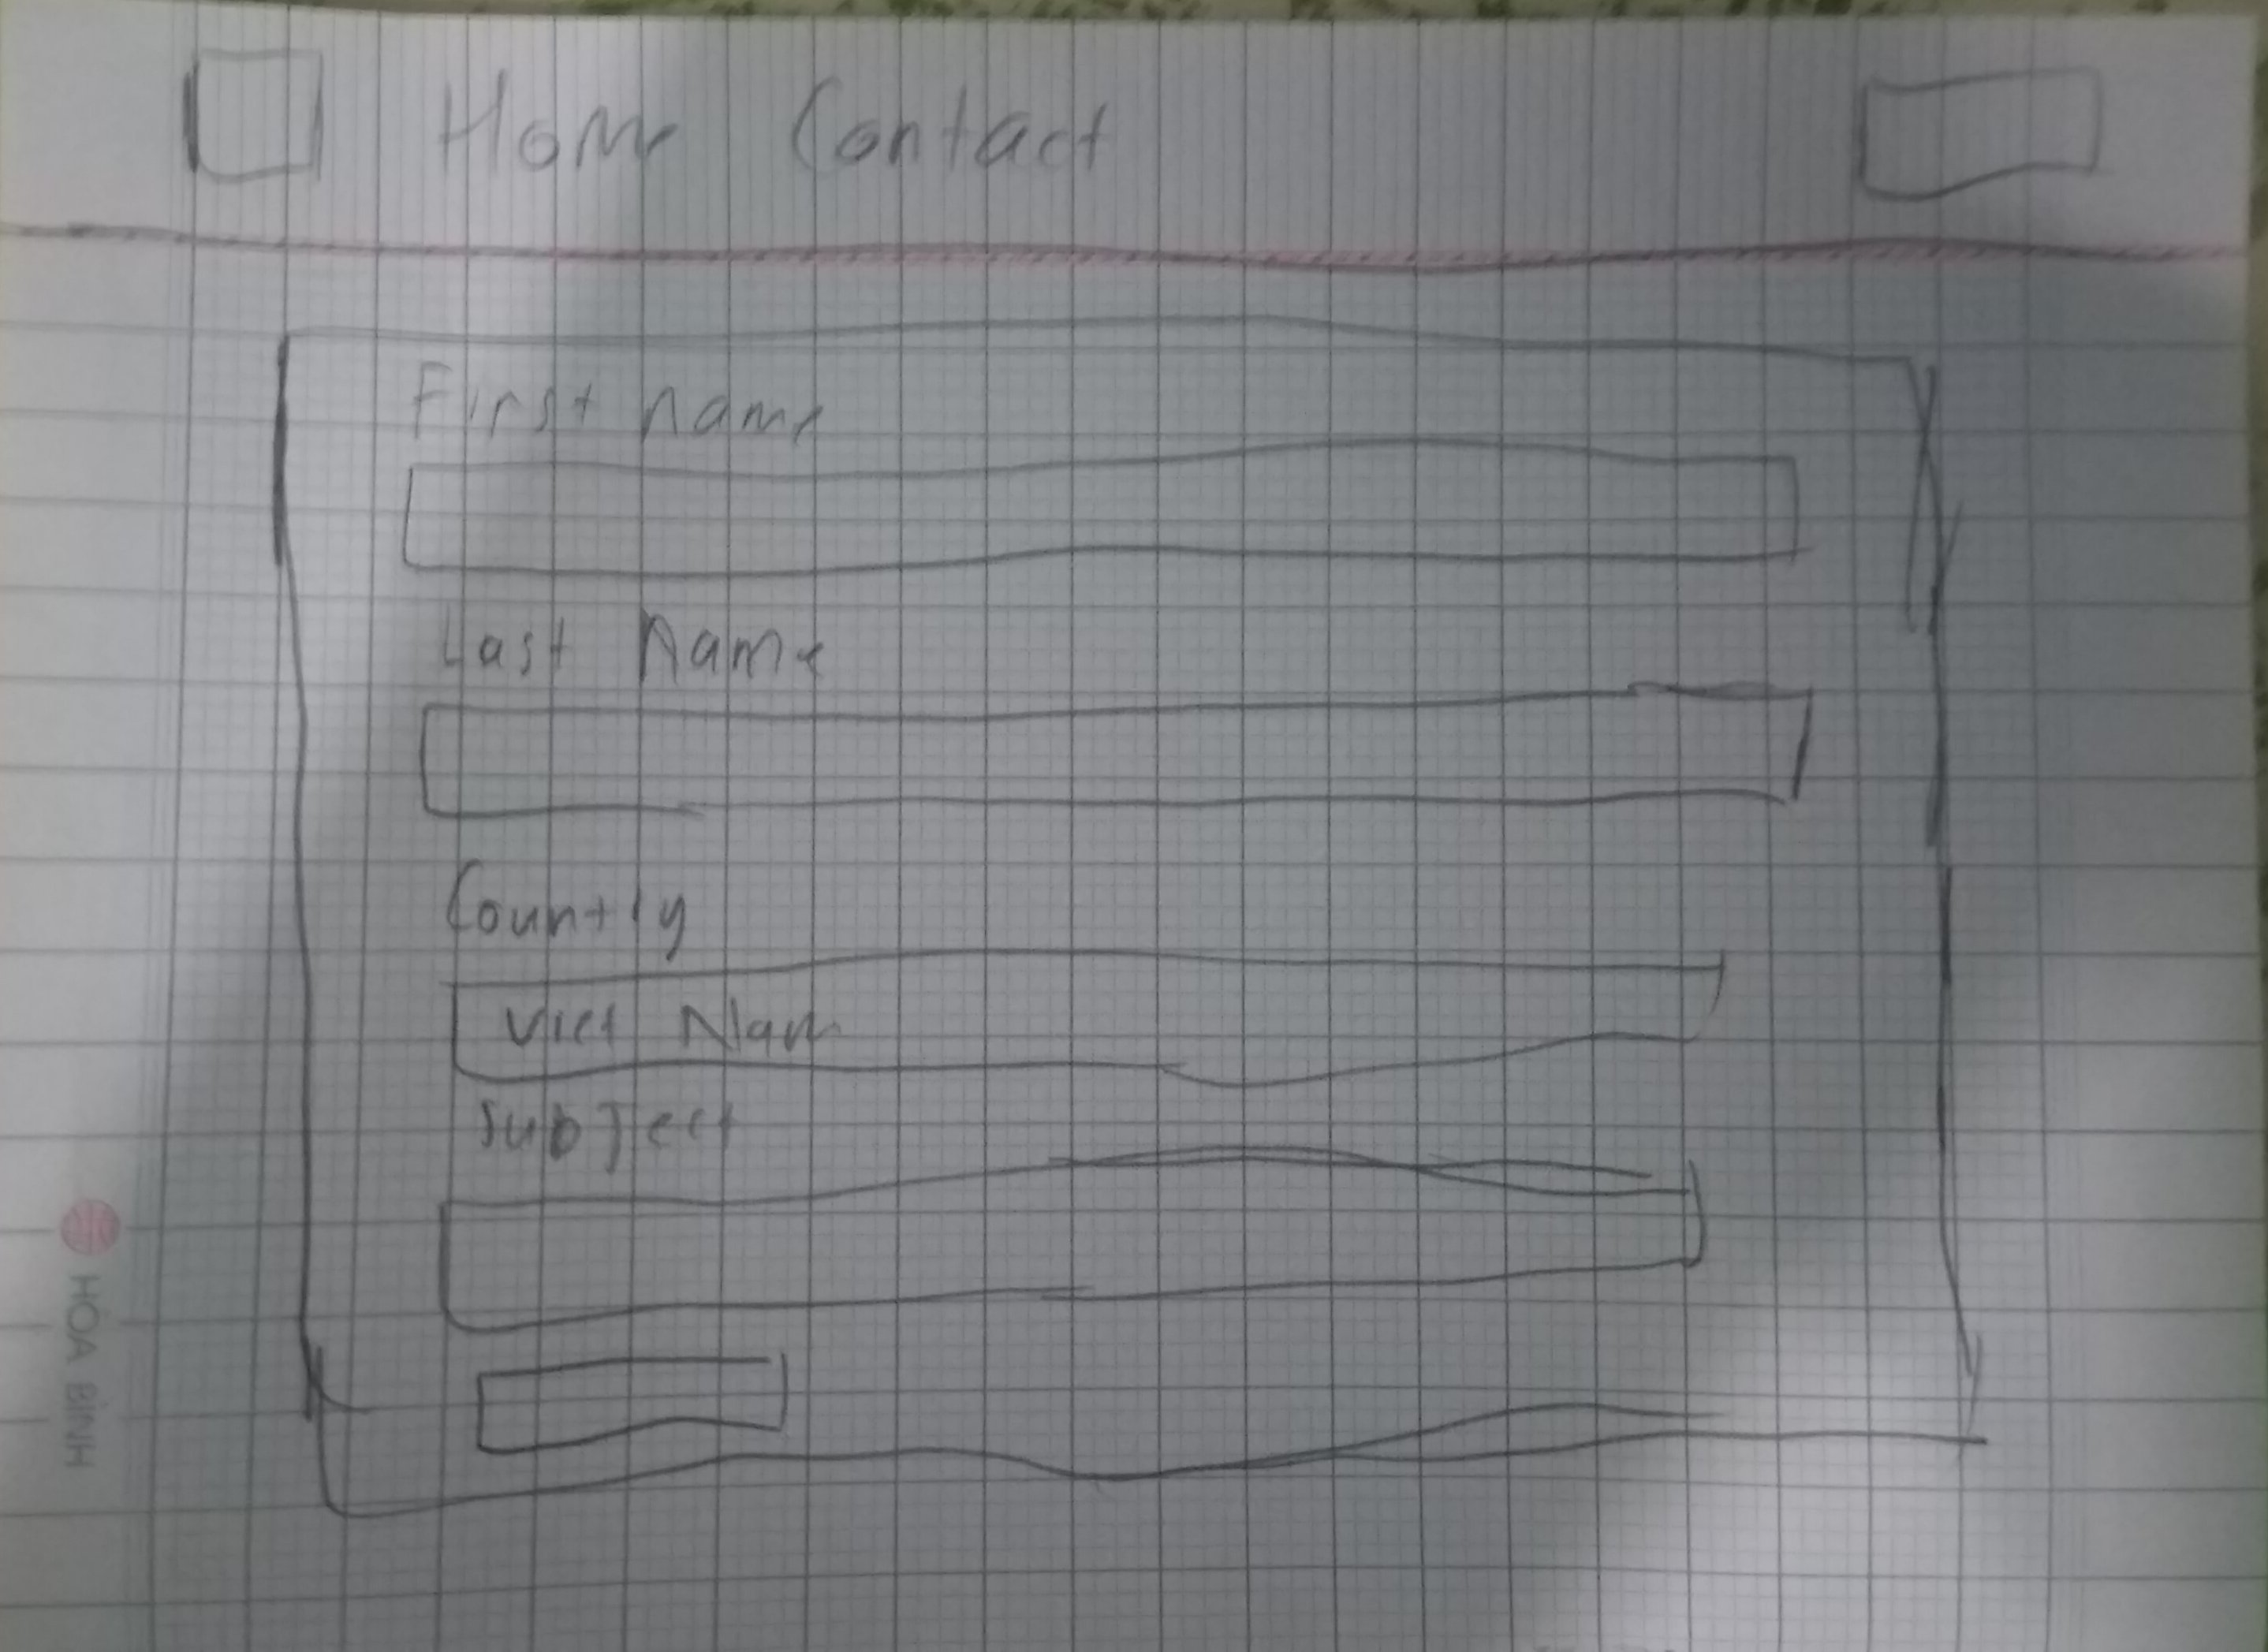 Home Contact
First name
Last Name
Country
Viet Nam
Subject
HÒA BÌNH